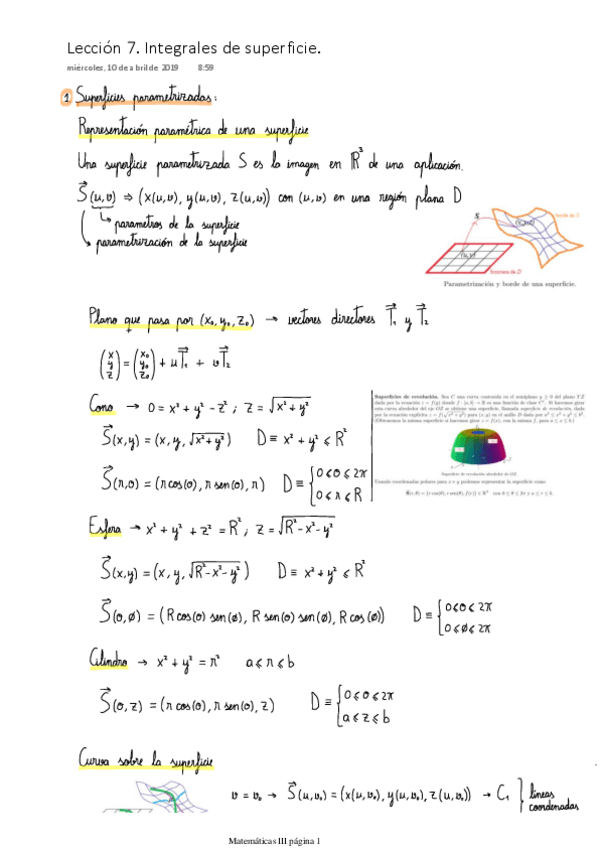 Lección 7. Integrales de superficie.
miércoles, 10 de abril de 2019 8:59
1 Superficies parametrizadas:
Representación paramétrica de una superficie
Una superficie parametrizada S es la imagen en ℝ³ de una aplicación.
S⃗(u,v) ⇒ (x(u,v), y(u,v), z(u,v)) con (u,v) en una región plana D
↳ parametros de la superficie
↳ parametrización de la superficie
S
(u,v)
borde de S
frontera de D
Parametrización y borde de una superficie.
Plano que pasa por (x₀, y₀, z₀) → vectores directores T⃗₁ y T⃗₂
(x y z) = (x₀ y₀ z₀) + uT⃗₁ + vT⃗₂
Cono → 0 = x² + y² - z² ; z = √(x² + y²)
S⃗(x,y) = (x, y, √(x² + y²)) D ≡ x² + y² ≤ R²
S⃗(r,θ) = (r cos(θ), r sen(θ), r) D ≡ { 0 ≤ θ ≤ 2π
0 ≤ r ≤ R
Superficies de revolución. Sea C una curva contenida en el semiplano y ≥ 0 del plano YZ
dada por la ecuación z = f(y) donde f : [a, b] → ℝ es una función de clase C¹. Si hacemos girar
esta curva alrededor del eje OZ se obtiene una superficie, llamada superficie de revolución, dada
por la ecuación explícita z = f(√(x² + y²)) para (x, y) en el anillo D dado por a² ≤ x² + y² ≤ b².
(Obtenemos la misma superficie si hacemos girar z = f(x), con la misma f, para a ≤ x ≤ b.)
Superficie de revolución alrededor de OZ.
Usando coordenadas polares para x e y podemos representar la superficie como
S⃗(r, θ) = (r cos(θ), r sen(θ), f(r)) ∈ ℝ³ con 0 ≤ θ ≤ 2π y a ≤ r ≤ b.
Esfera → x² + y² + z² = R² ; z = √(R² - x² - y²)
S⃗(x,y) = (x, y, √(R² - x² - y²)) D ≡ x² + y² ≤ R²
S⃗(θ,ø) = (R cos(θ) sen(ø), R sen(θ) sen(ø), R cos(ø)) D ≡ { 0 ≤ θ ≤ 2π
0 ≤ ø ≤ 2π
Cilindro → x² + y² = r² a ≤ r ≤ b
S⃗(θ, z) = (r cos(θ), r sen(θ), z) D ≡ { 0 ≤ θ ≤ 2π
a ≤ z ≤ b
Curva sobre la superficie
v = v₀ → S⃗(u,v₀) = (x(u,v₀), y(u,v₀), z(u,v₀)) → C₁ } líneas
coordenadas
Matemáticas III página 1